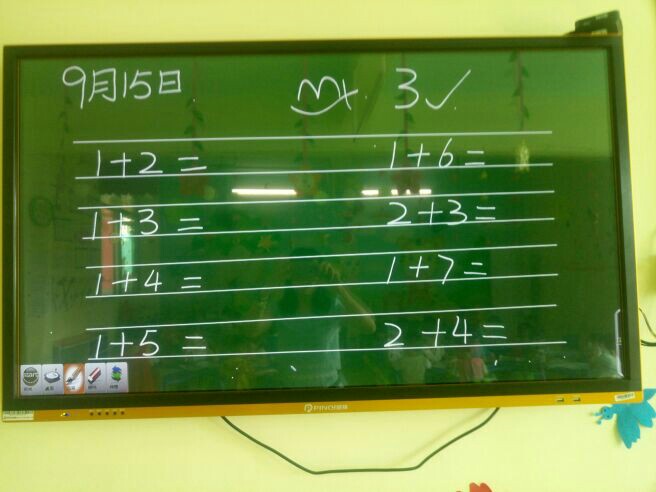 9月15日 Mx. 3✓
1+2= 1+6=
1+3= 2+3=
1+4= 1+7=
1+5= 2+4=